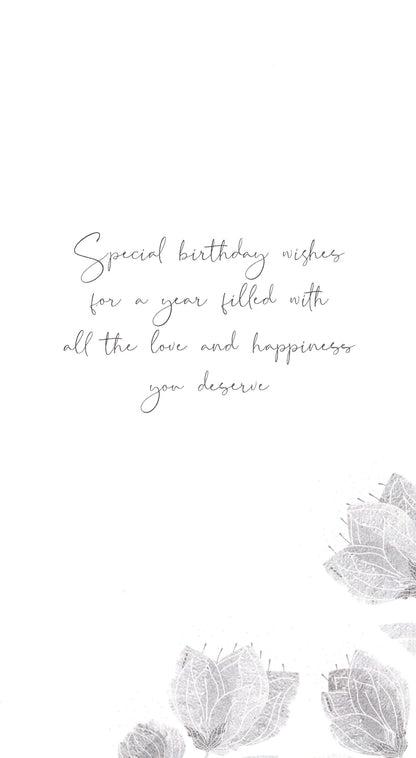 Special birthday wishes
for a year filled with
all the love and happiness
you deserve